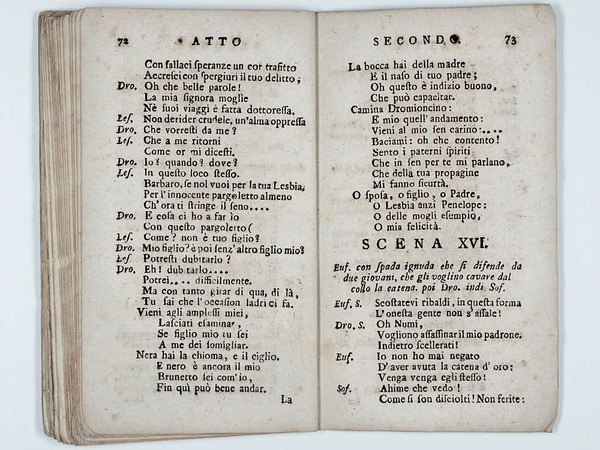 72 ATTO
Con fallaci speranze un cor trafitto
Accresci con spergiuri il tuo delitto;
Dro. Oh che belle parole!
La mia signora moglie
Nè suoi viaggi è fatta dottoressa.
Les. Non derider crudele, un'alma oppressa
Dro. Che vorresti da me?
Les. Che a me ritorni
Come or mi dicesti.
Dro. Io? quando? dove?
Les. In questo loco stesso.
Barbaro, se nol vuoi per la tua Lesbia,
Per l'innocente pargoletto almeno
Ch'ora ti stringe il seno....
Dro. E cosa ci ho a far io
Con questo pargoletto?
Les. Come? non è tuo figlio?
Dro. Mio figlio? e poi senz'altro figlio mio?
Les. Potresti dubitarlo?
Dro. Eh! dubitarlo....
Potrei.... difficilmente.
Ma con tanto girar di qua, di là,
Tu sai che l'occasion ladri ci fa.
Vieni agli amplessi miei,
Lasciati esaminar,
Se figlio mio tu sei
A me dei somigliar.
Nera hai la chioma, e il ciglio.
E nero è ancora il mio
Brunetto sei com'io,
Fin quì può bene andar.
La
SECONDO. 73
La bocca hai della madre
E il naso di tuo padre;
Oh questo è indizio buono,
Che può capacitar.
Camina Dromioncino:
E mio quell'andamento:
Vieni al mio sen carino:....
Baciami: oh che contento!
Sento i paterni spiriti
Che in sen per te mi parlano,
Che della tua propagine
Mi fanno sicurtà.
O sposa, o figlio, o Padre,
O Lesbia anzi Penelope:
O delle mogli esempio,
O mia felicità.
SCENA XVI.
Euf. con spada ignuda che si difende da
due giovani, che gli voglino cavare dal
collo la catena. poi Dro. indi Sof.
Euf. S. Scostatevi ribaldi, in questa forma
L'onesta gente non s'assale!
Dro. S. Oh Numi,
Vogliono assassinar il mio padrone.
Indietro scellerati!
Euf. Io non ho mai negato
D'aver avuta la catena d'oro:
Venga venga egli stesso!
Sof. Ahime che vedo!
Come si son disciolti! Non ferite: